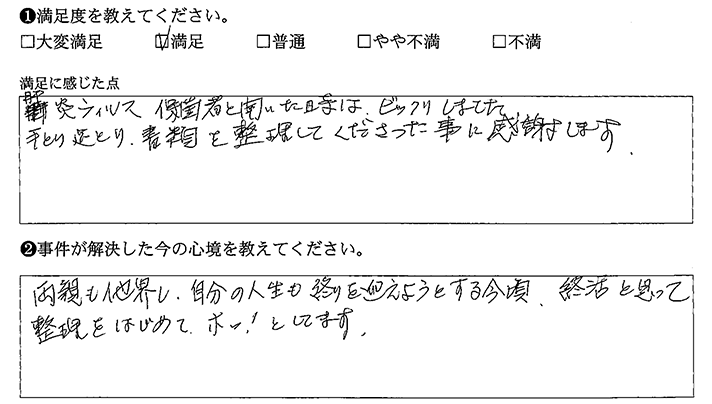 ❶満足度を教えてください。
□大変満足 ☑満足 □普通 □やや不満 □不満
満足に感じた点
肝炎ウィルス保菌者と聞いた時は、ビックリしました
手とり足とり、書類を整理してくださった事に感謝します.
❷事件が解決した今の心境を教えてください。
両親も他界し、自分の人生も終りを迎えようとする今頃、終活と思って
整理をはじめて、ホッ!としてます.